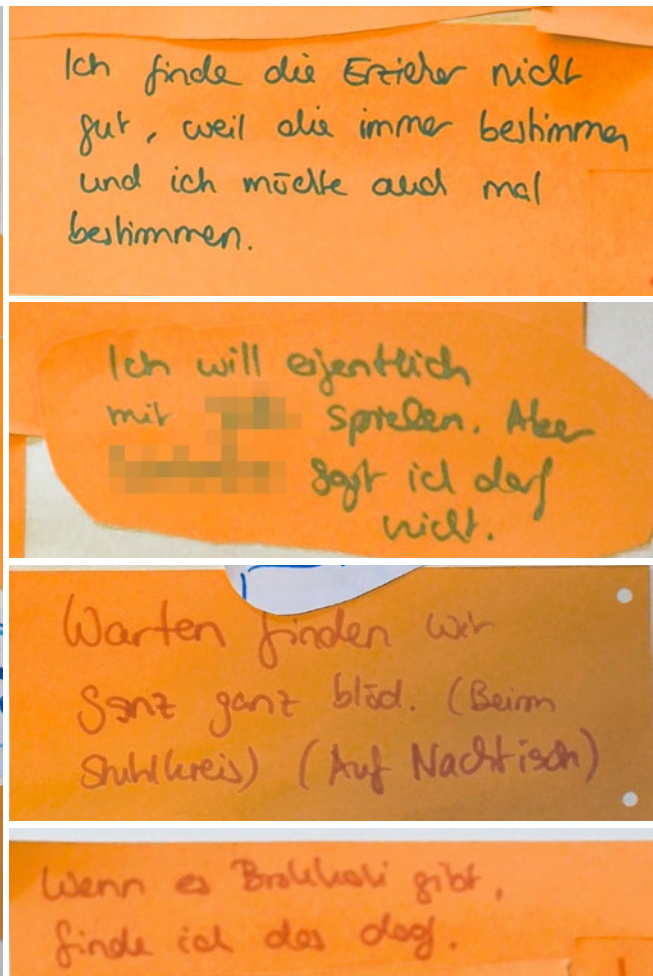 Ich finde die Erzieher nicht
gut, weil die immer bestimmen
und ich möchte auch mal
bestimmen.
Ich will eigentlich
mit spielen. Aber
sagt ich darf
nicht.
Warten finden wir
ganz ganz blöd. (Beim
Stuhlkreis) (Auf Nachtisch)
Wenn es Brokkoli gibt,
finde ich das doof.